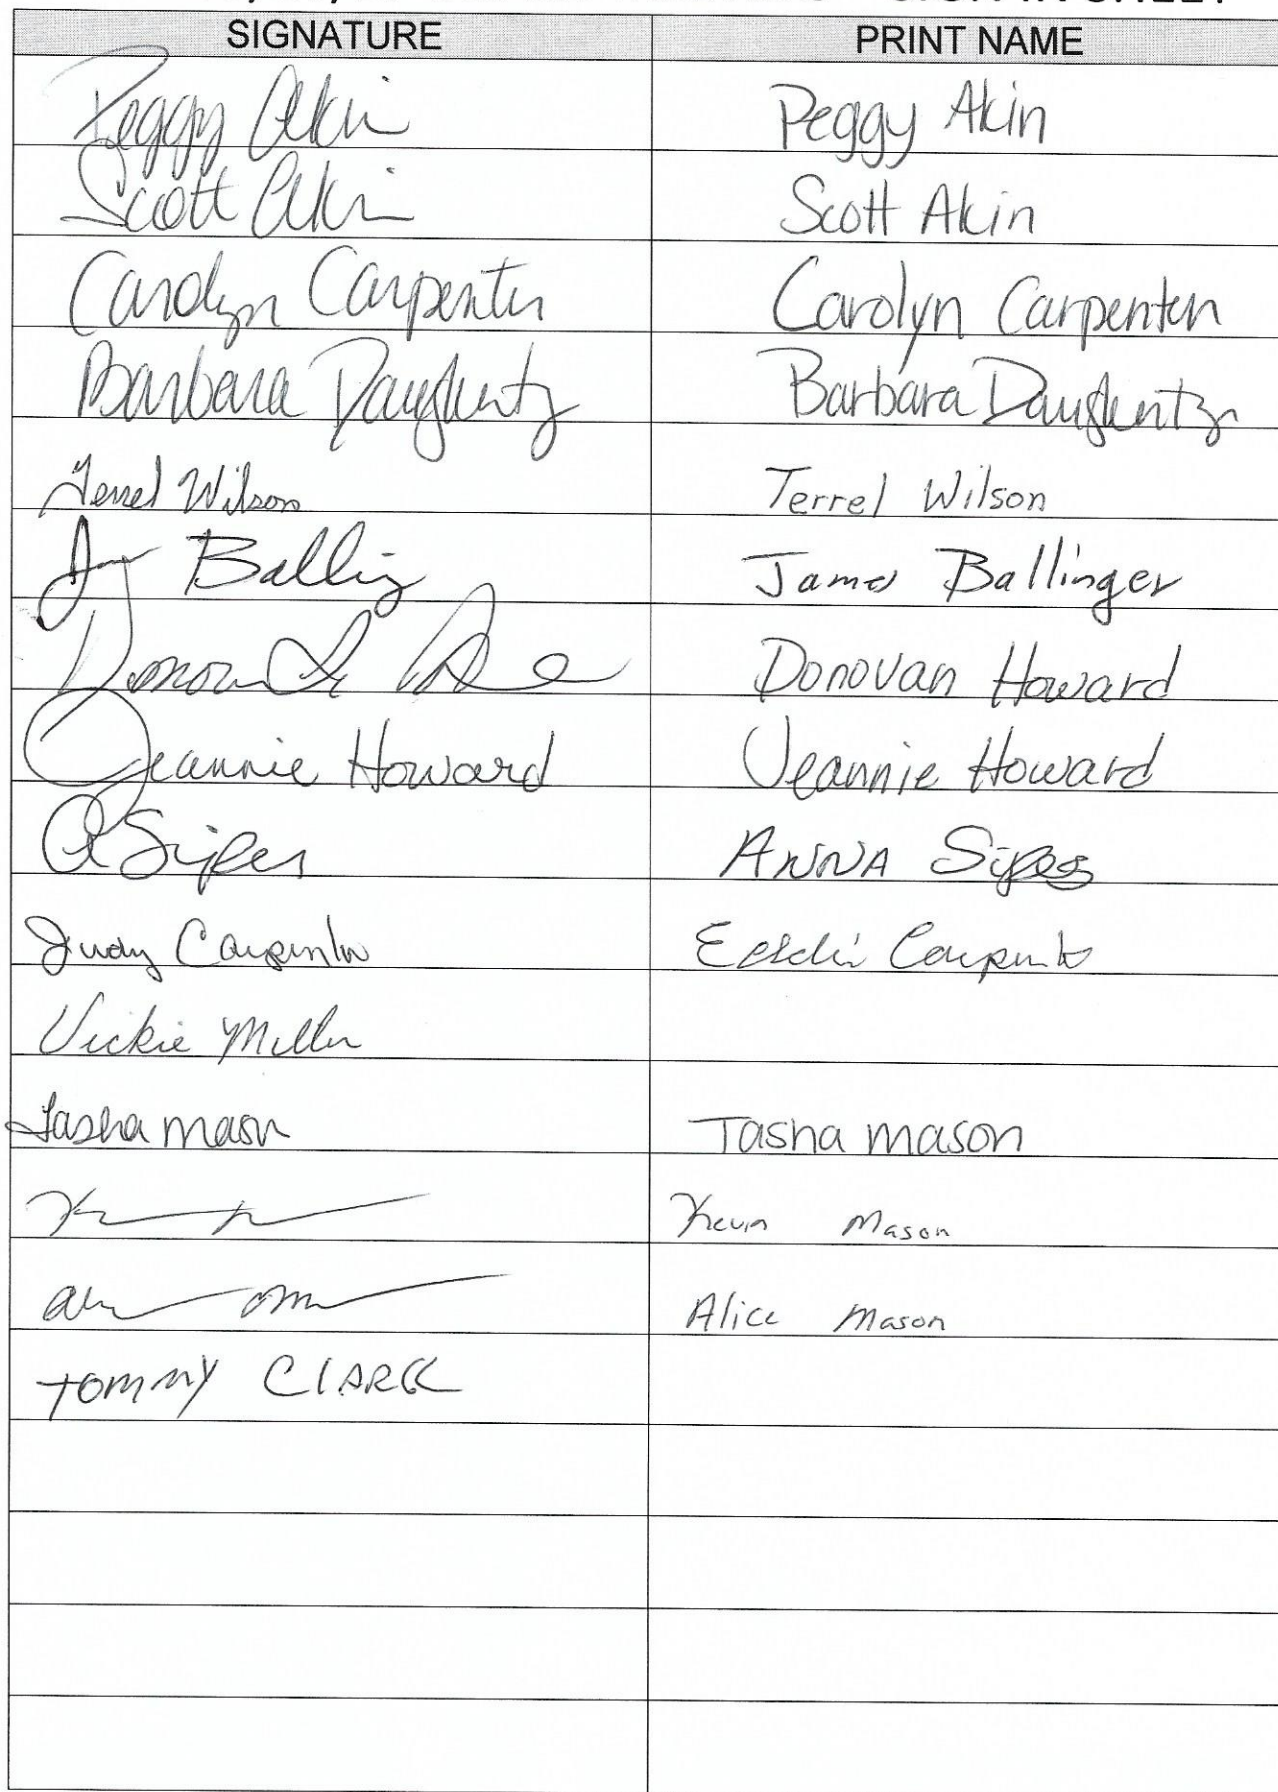 SIGN IN SHEET
SIGNATURE PRINT NAME
Peggy Akin Peggy Akin
Scott Akin Scott Akin
Carolyn Carpenter Carolyn Carpenter
Barbara Daugherty Barbara Daugherty
Terrel Wilson Terrel Wilson
James Ballinger
Donovan Howard
Jeannie Howard Jeannie Howard
A Sipes ANNA Sipes
Judy Carpenter Eddie Carpenter
Vickie Miller
Tasha Mason Tasha Mason
Kevin Mason
Alice Mason
TOMMY CLARK